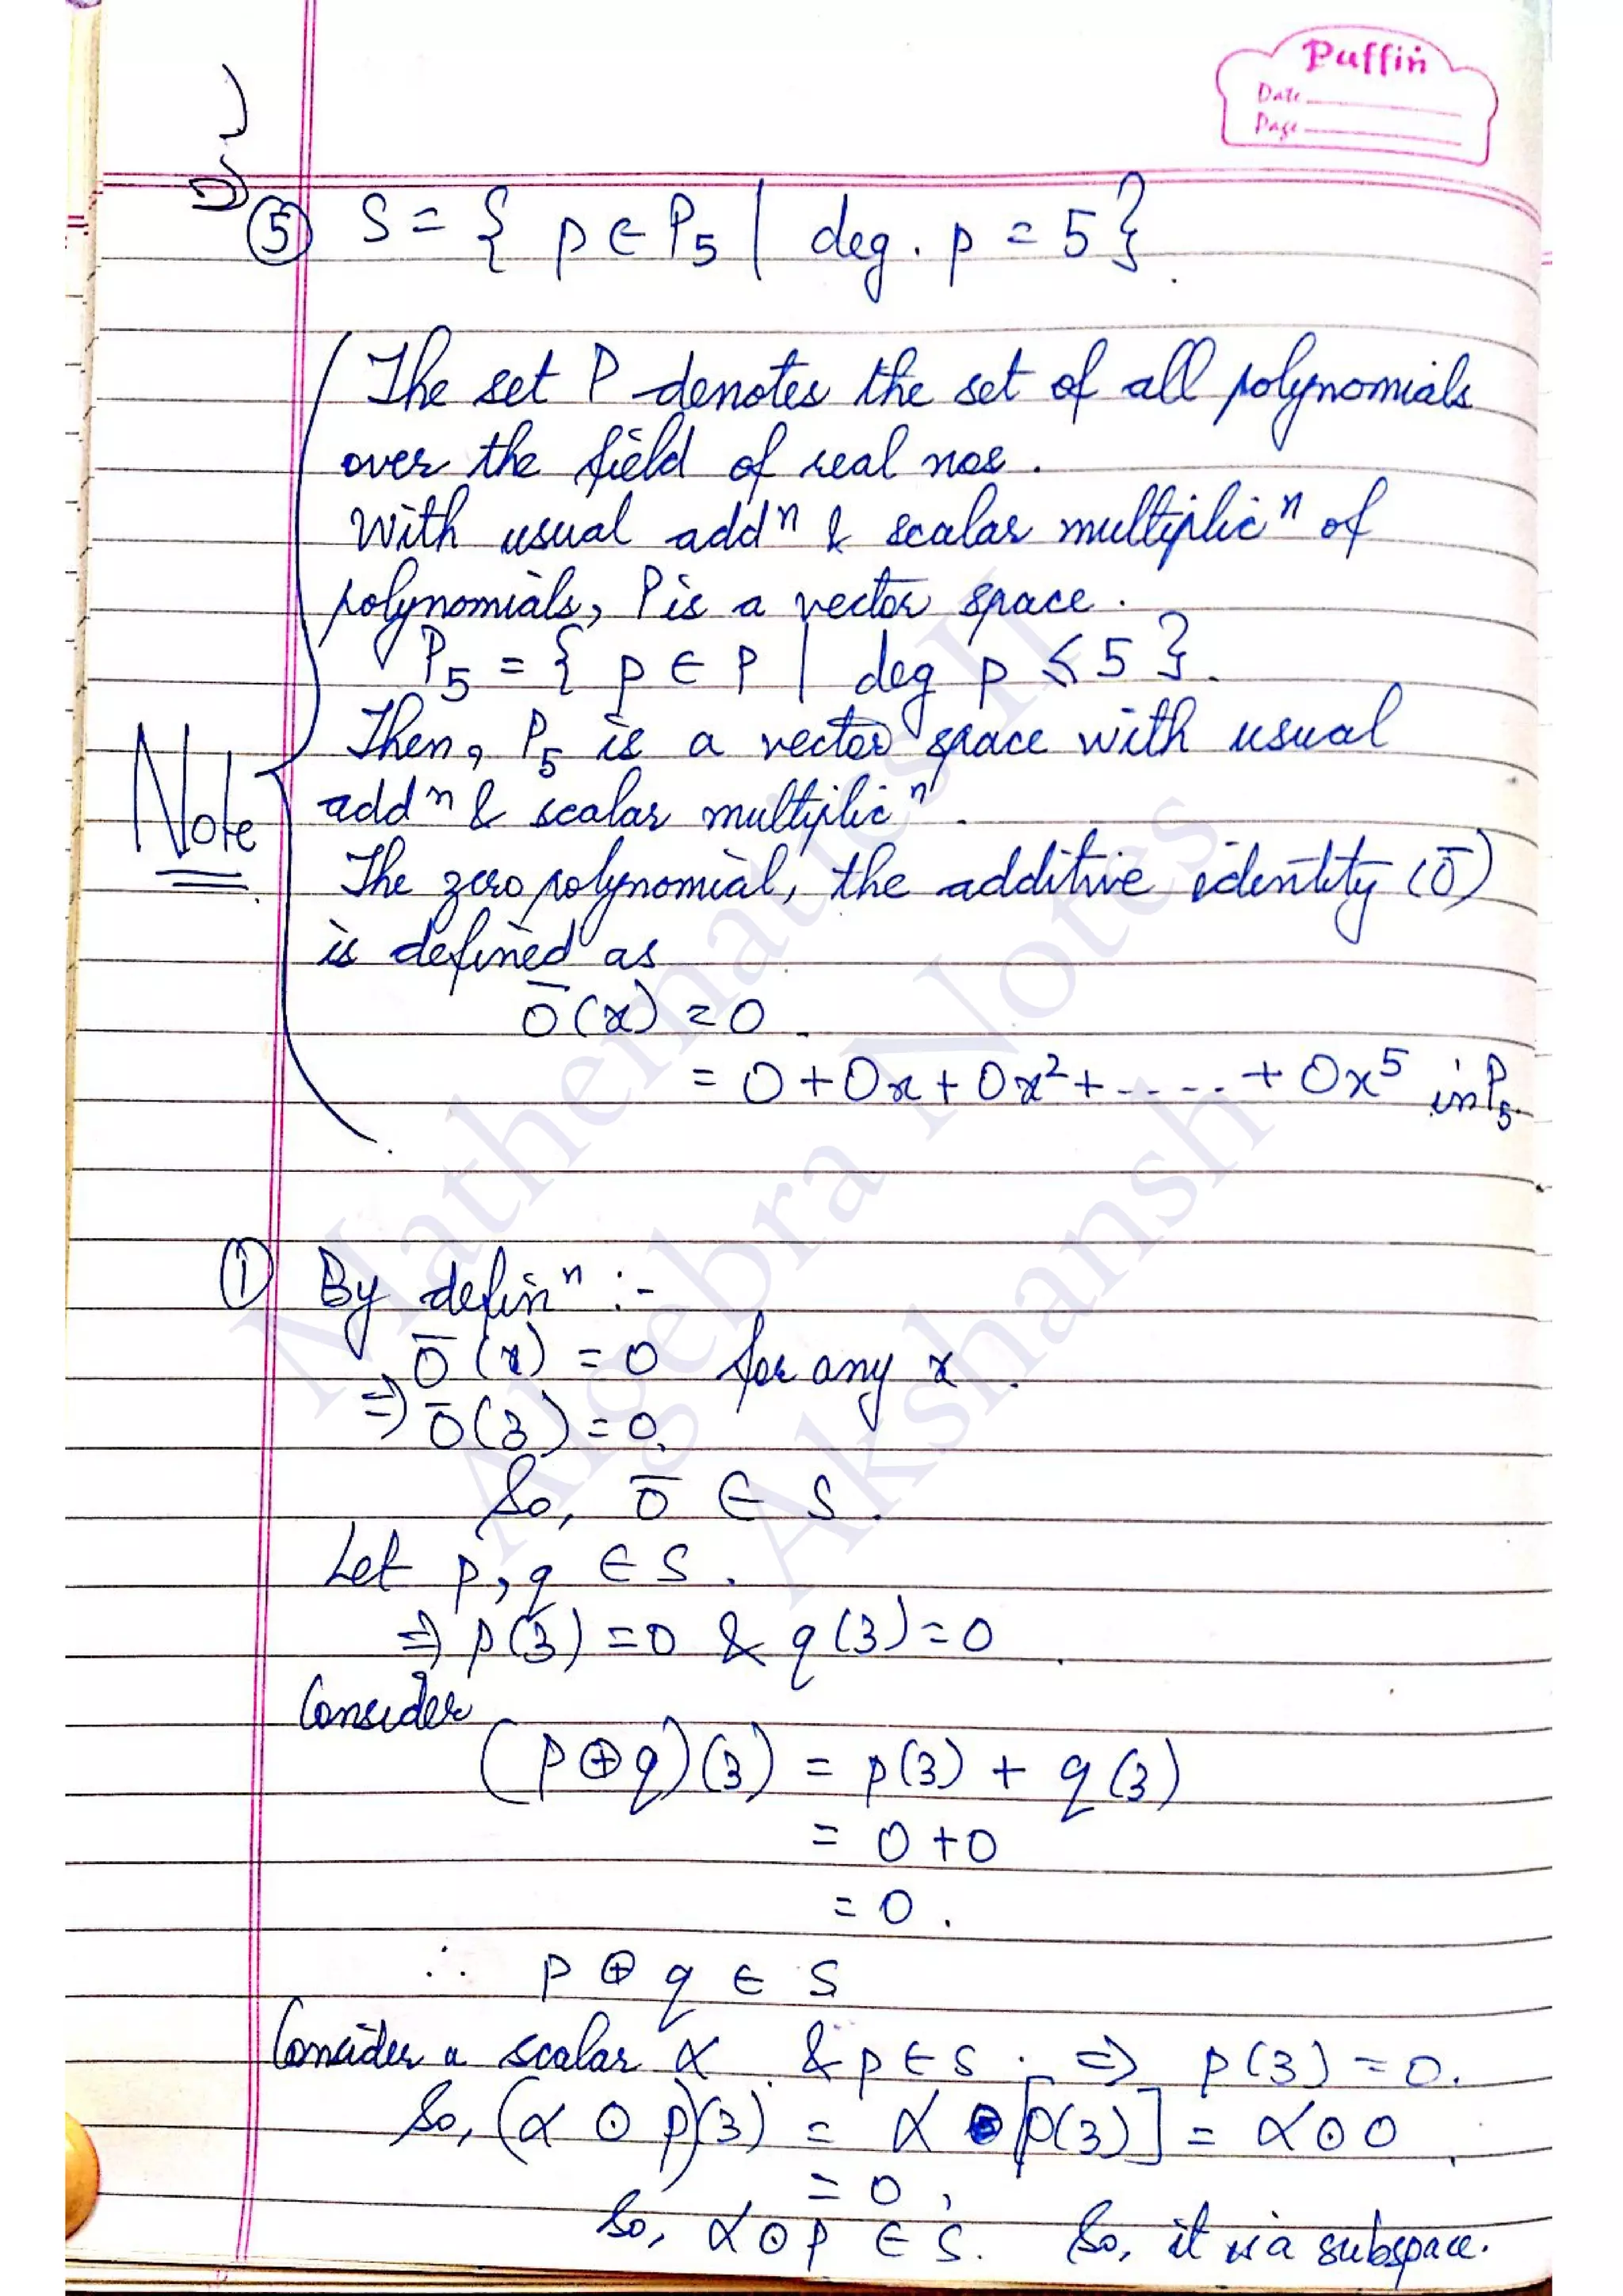 Puffin
Date
Page
⑤ S = { p ∈ P₅ | deg. p = 5}.
The set P denotes the set of all polynomials
over the field of real nos.
With usual addⁿ & scalar multiplicⁿ of
polynomials, P is a vector space.
P₅ = { p ∈ P | deg p ≤ 5 }.
Then, P₅ is a vector space with usual
Note
addⁿ & scalar multiplicⁿ.
The zero polynomial, the additive identity (ō)
is defined as
ō(x) = 0
= 0 + 0x + 0x² + ..... + 0x⁵ in P₅.
① By definⁿ :-
ō(x) = 0 for any x.
⇒ ō(3) = 0.
So, ō ∈ S.
Let p, q ∈ S.
⇒ p(3) = 0 & q(3) = 0.
Consider
(p ⊕ q)(3) = p(3) + q(3)
= 0 + 0
= 0.
∴ p ⊕ q ∈ S
Consider a scalar α & p ∈ S. ⇒ p(3) = 0.
So, (α ⊙ p)(3) = α ⊙ [p(3)] = α ⊙ 0
= 0,
So, α ⊙ p ∈ S. So, it is a subspace.
Mathematics II
Algebra Notes
Akshansh